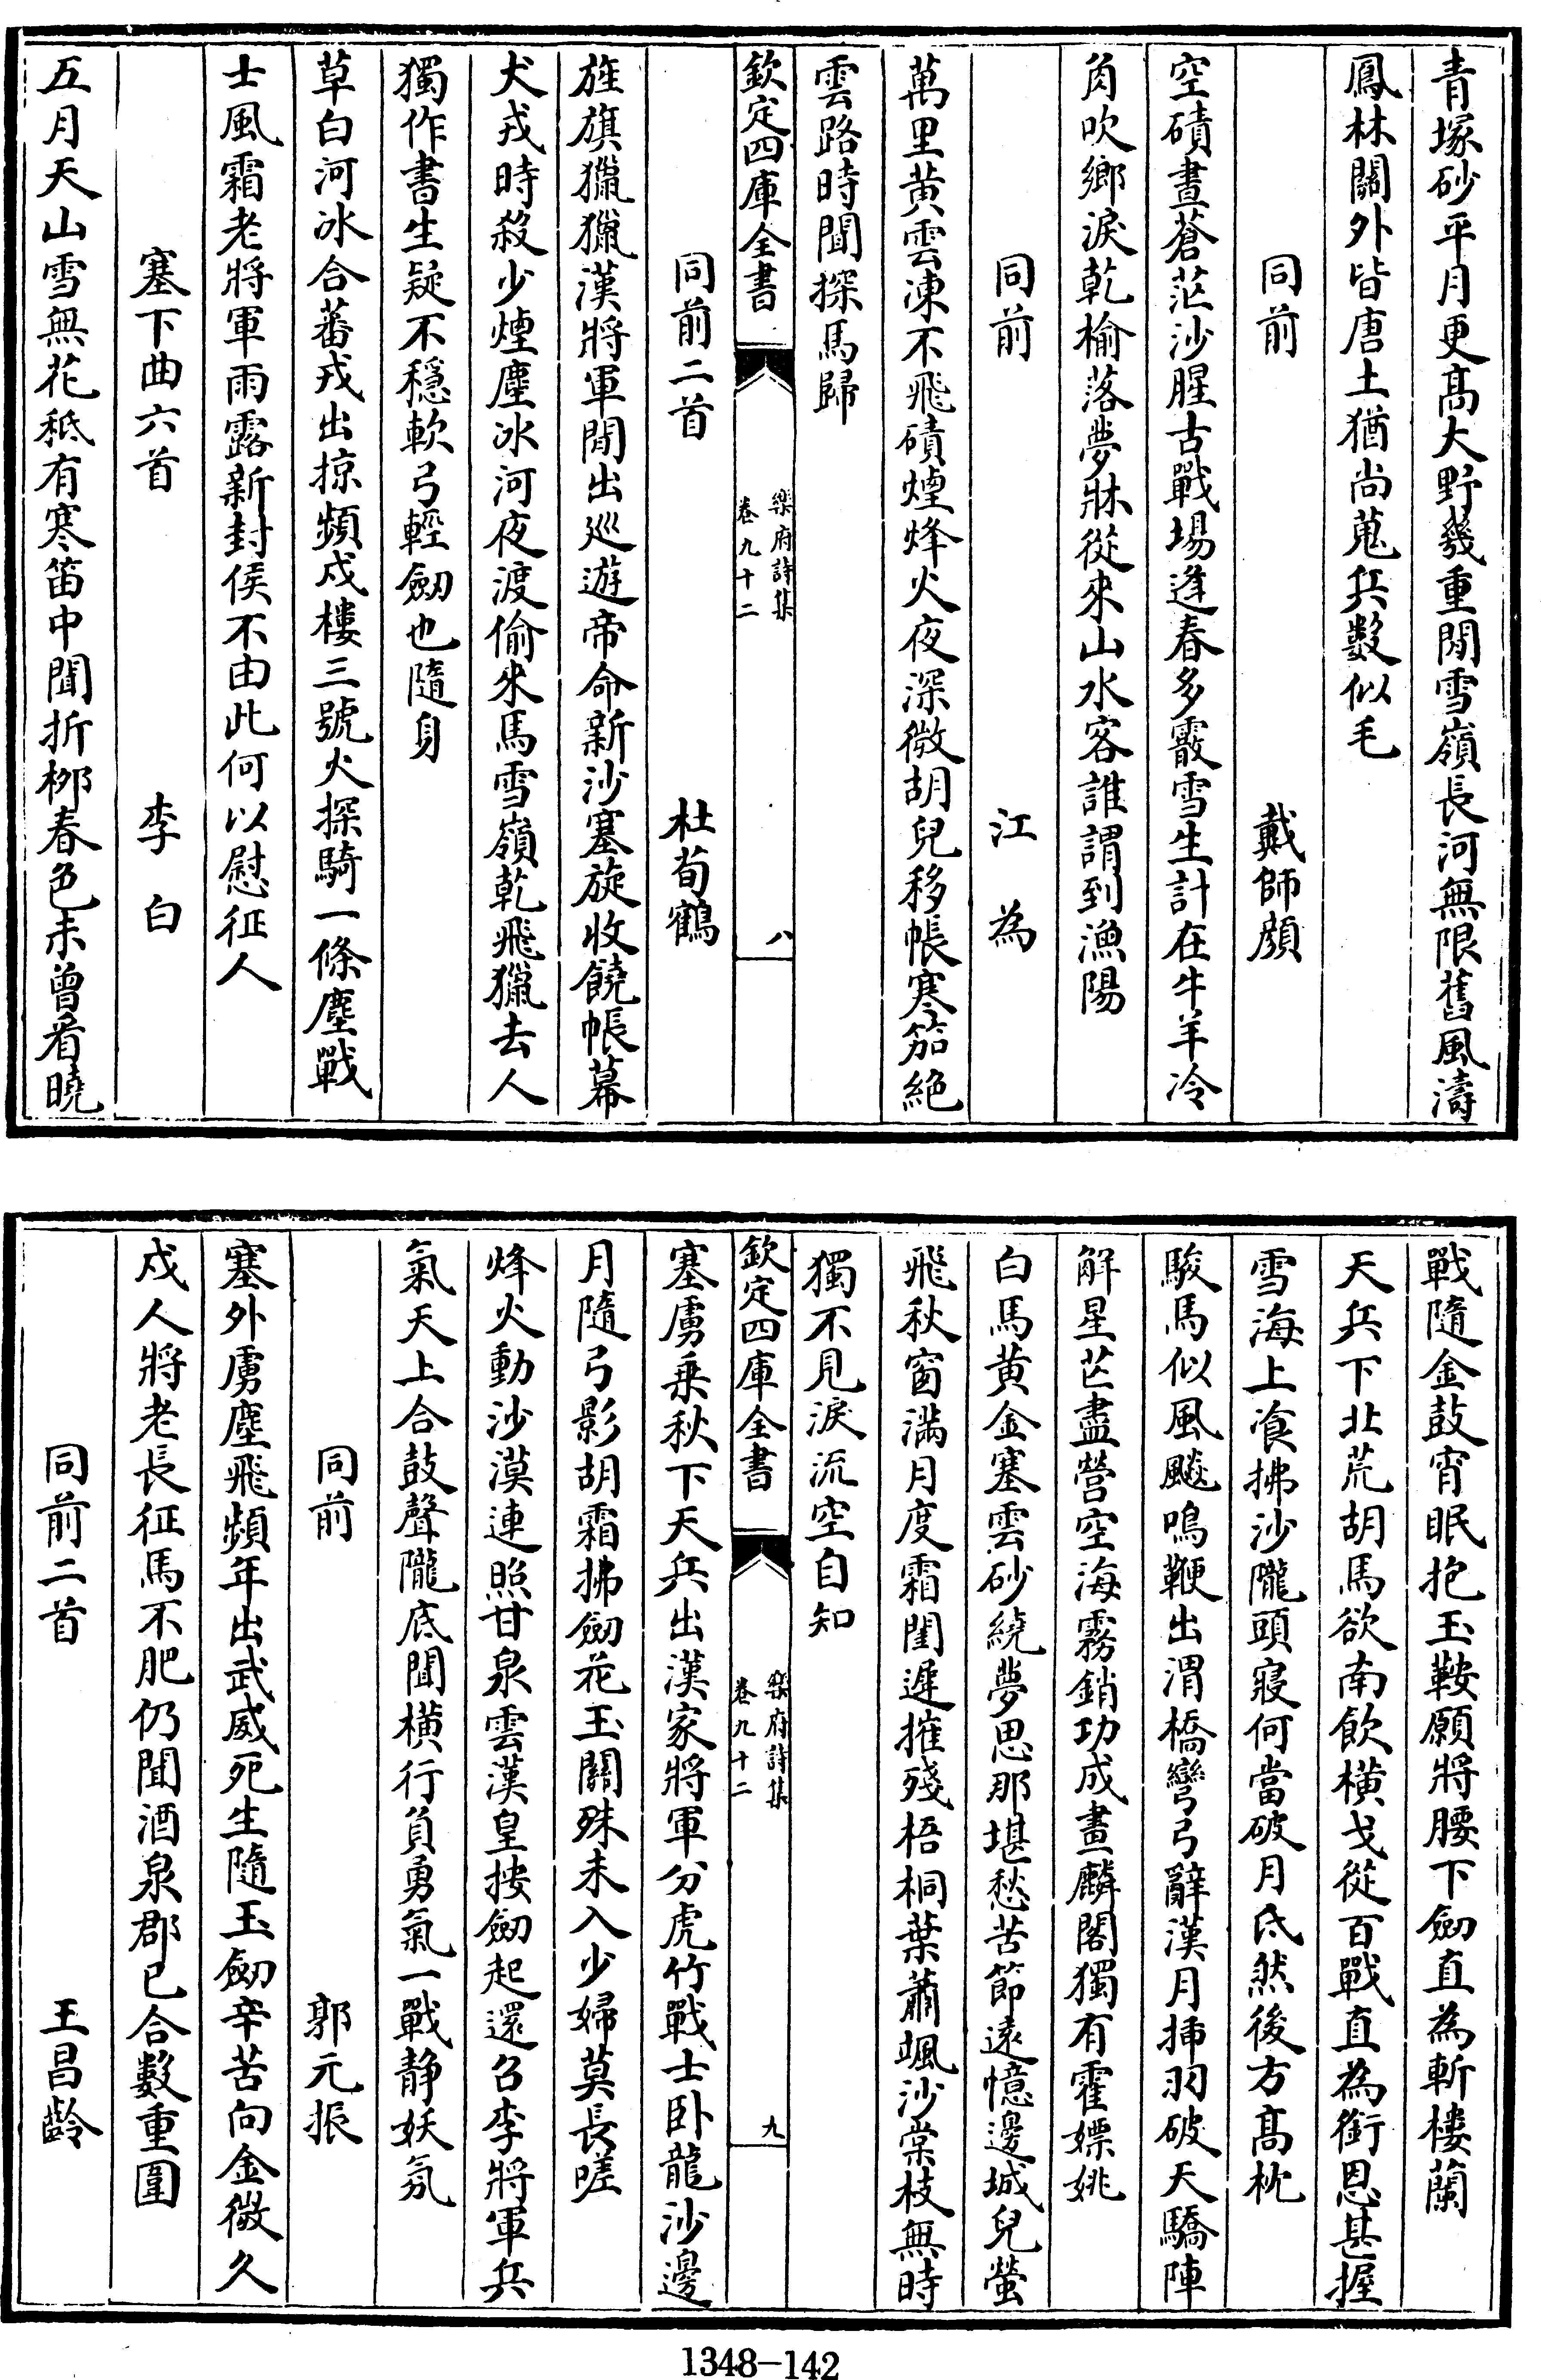 青塜砂平月更髙大野幾重閒雪嶺長河無限舊風濤
鳳林闗外皆唐土猶尚蒐兵數似毛
同前 戴師顔
空磧晝蒼茫沙腥古戰塲逢春多霰雪生計在牛羊冷
角吹鄉淚乾榆落夢牀從來山水客誰謂到漁陽
同前 江為
萬里黄雲凍不飛磧煙烽火夜深微胡兒移帳寒笳絶
雲路時聞探馬歸
欽定四庫全書 樂府詩集 卷九十二 八
同前二首 杜荀鶴
旌旗獵獵漢將軍閒出巡遊帝命新沙塞旋收饒帳幕
犬戎時殺少煙塵冰河夜渡偷來馬雪嶺乾飛獵去人
獨作書生疑不穩軟弓輕劒也隨身
草白河冰合蕃戎出掠頻戍樓三號火探騎一條塵戰
士風霜老將軍雨露新封侯不由此何以慰征人
塞下曲六首 李白
五月天山雪無花秪有寒笛中聞折栁春色未曾看曉
戰隨金鼓宵眠抱玉鞍願將腰下劒直為斬樓蘭
天兵下北荒胡馬欲南飲横戈從百戰直為銜恩甚握
雪海上飡拂沙隴頭寢何當破月氏然後方髙枕
駿馬似風飈鳴鞭出渭橋彎弓辭漢月揷羽破天驕陣
解星芒盡營空海霧銷功成畫麟閣獨有霍嫖姚
白馬黄金塞雲砂繞夢思那堪愁苦節遠憶邊城兒螢
飛秋窗滿月度霜閨遲摧殘梧桐葉蕭颯沙棠枝無時
獨不見淚流空自知
欽定四庫全書 樂府詩集 卷九十二 九
塞虜乗秋下天兵出漢家將軍分虎竹戰士卧龍沙邊
月隨弓影胡霜拂劒花玉闗殊未入少婦莫長嗟
烽火動沙漠連照甘泉雲漢皇按劒起還召李將軍兵
氣天上合鼓聲隴底聞横行負勇氣一戰静妖氛
同前 郭元振
塞外虜塵飛頻年出武威死生隨玉劒辛苦向金微久
戍人將老長征馬不肥仍聞酒泉郡已合數重圍
同前二首 王昌齡
1348-142